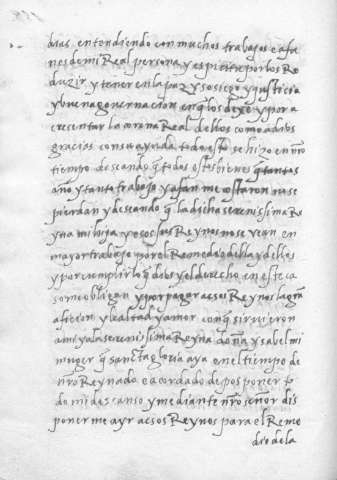 dias entendiendo con muchos trabajos e afa
nes de mi Real persona y espiritu por los Re
duzir y tener en la paz y sosiego y justicia
y buena governacion en q̃ los dexe y por a
crecentar la corona Real dellos como a dios
gracias con su ayuda todo esto se hizo en nr̃o
tiempo deseando q̃ todos estos bienes q̃ tantos
años y tanto trabajo y afan me costaron no se
pierdan y deseando q̃ la dicha serenissima Re
yna mi hija y esos sus Reynos no se vean en
mayor trabajo por el Remedio della y dellos
y por cumplir lo q̃ dios y el derecho en este ca
so me obligan y por pagar a esos Reynos la gran
aficion y lealtad y amor con q̃ sirvieron
a mi y a la serenissima Reyna doña ysabel mi
muger q̃ sancta gloria aya en el tiempo de
nr̃o Reynado e acordado de posponer to
do mi descanso y mediante nr̃o señor dis
poner me a yr a esos Reynos para el Reme
dio de la